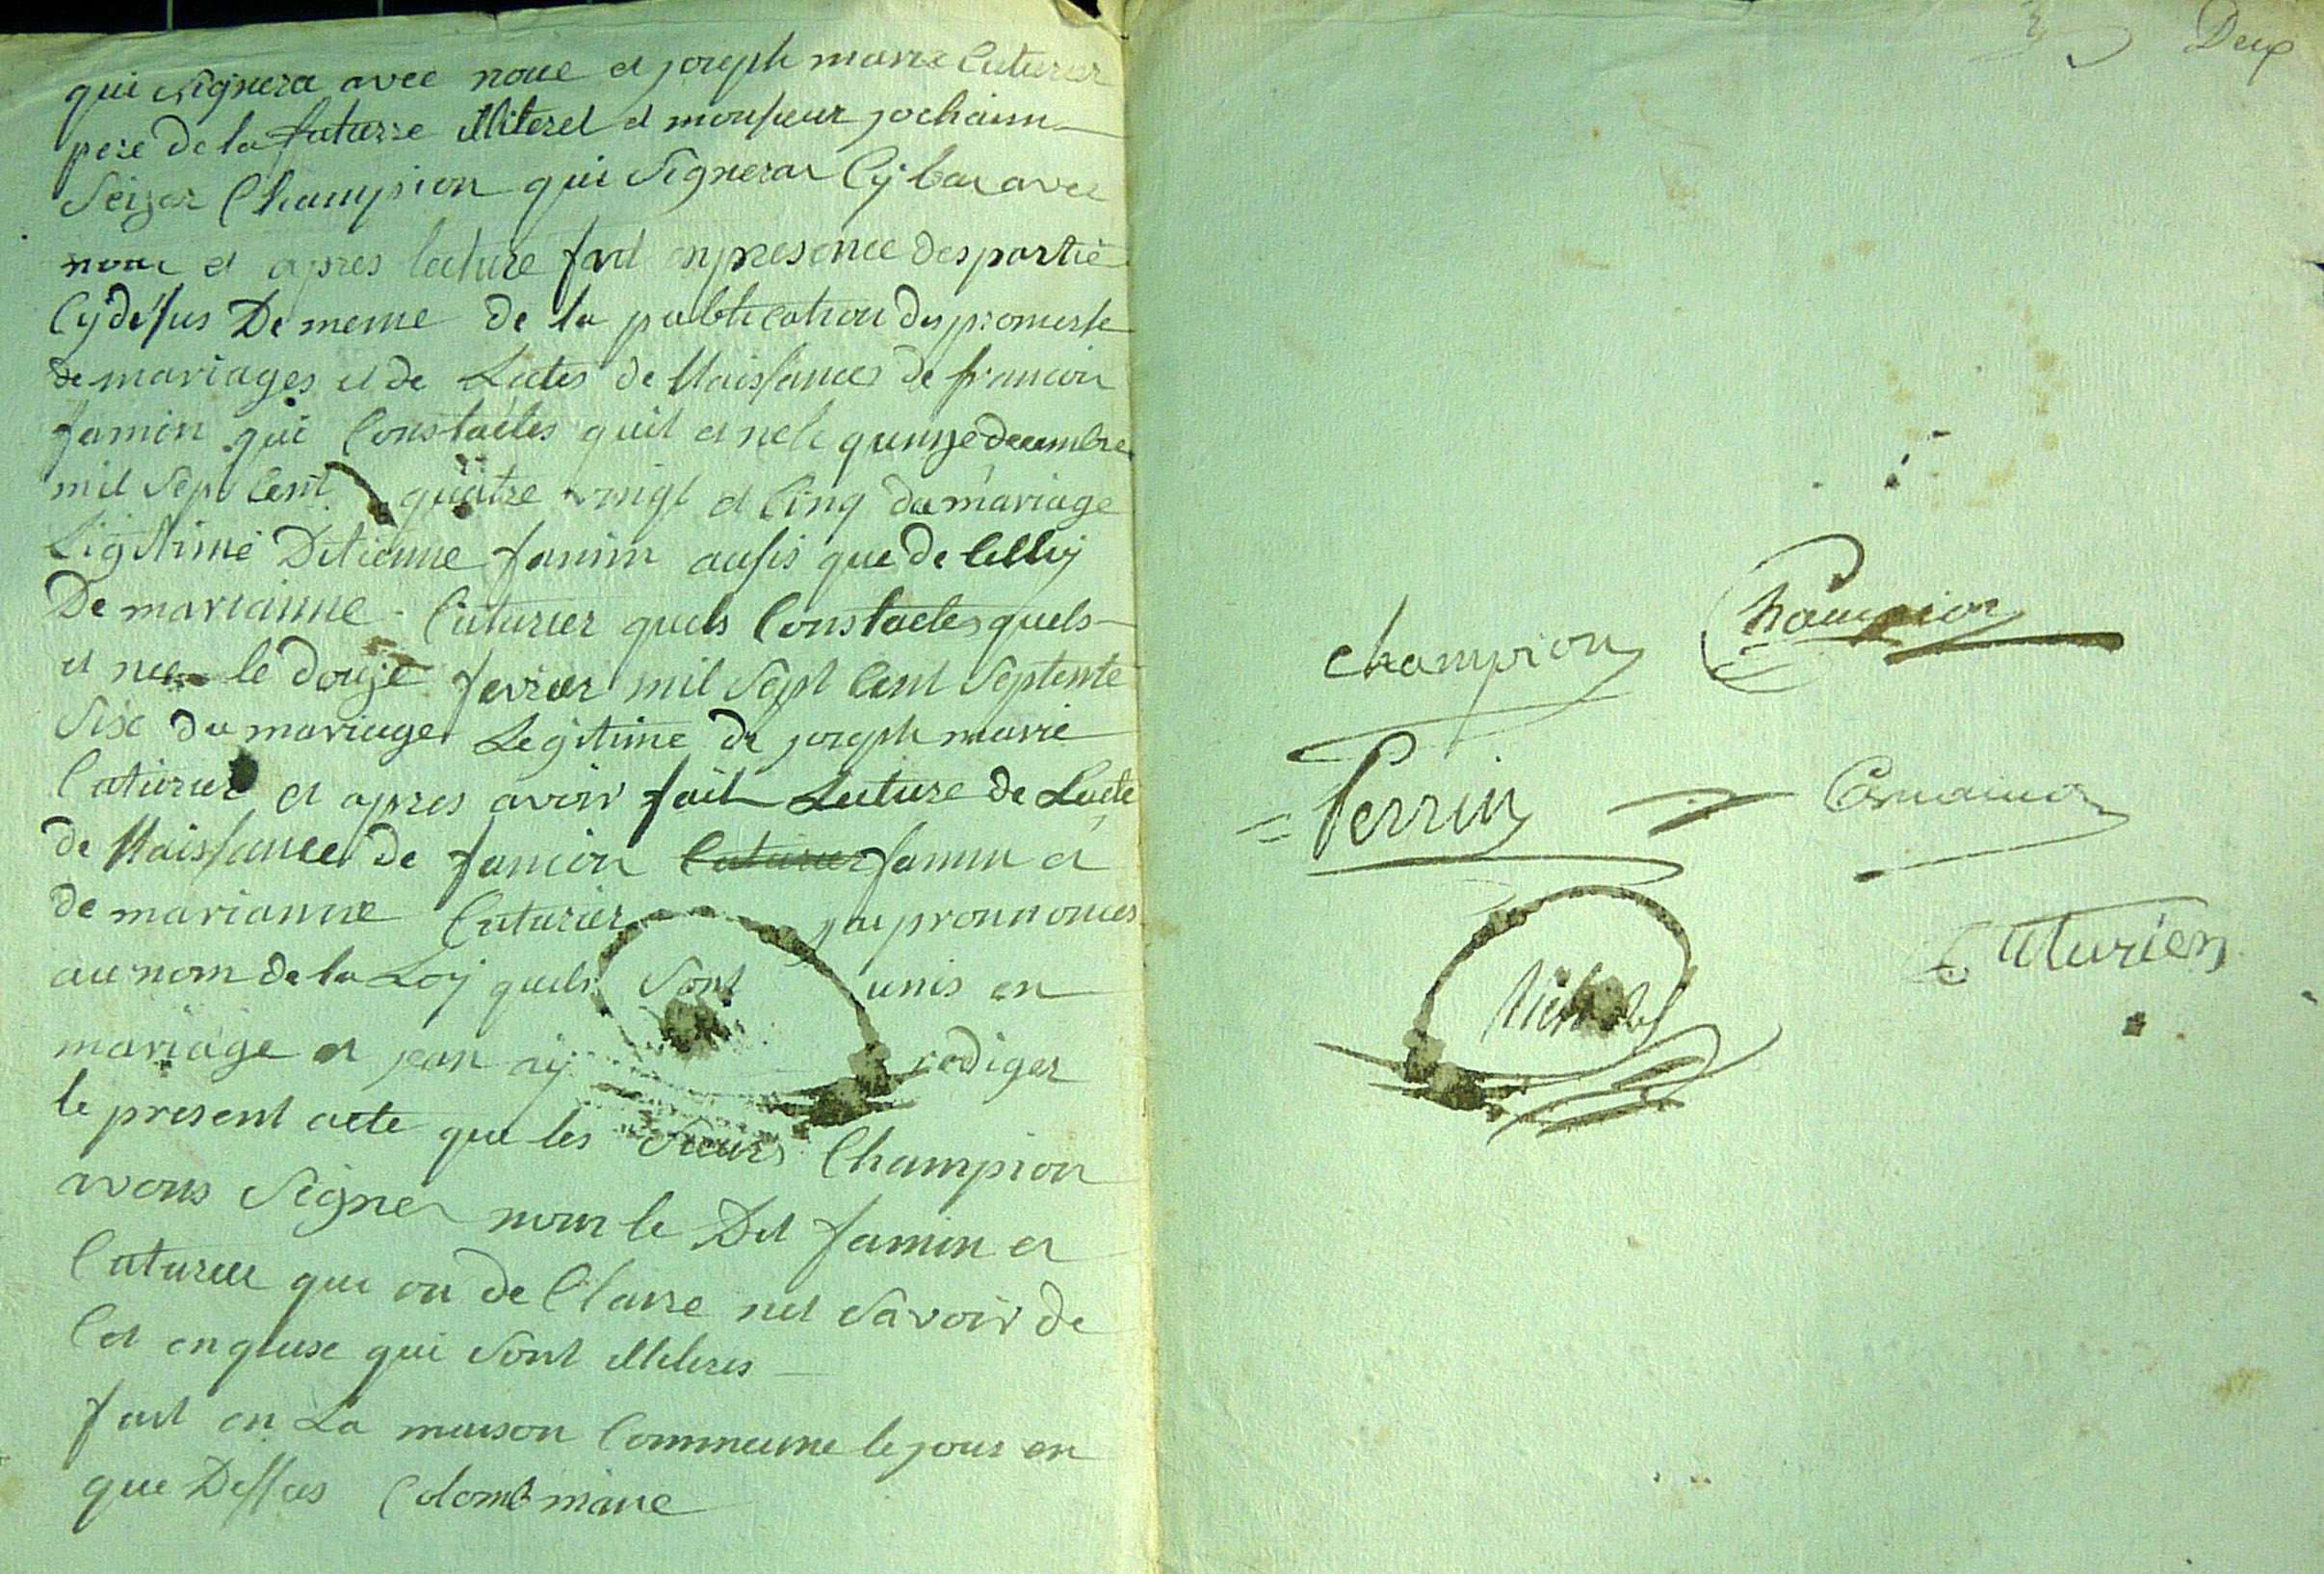 qui signera avec nous et joseph marie Cuturier
pere de la future illiteret et monsieur jochaim
Seizar Champion qui Signerar Cy bas avec
nous et apres lecture fait enpresence des partie
Cydessus De meme de la publication des promesse
de mariages et de Lactes de Naissances de francoi
famin qui Constactes quil et nele quinze decembre
mil Sept Cent quatre vingt et Cinq du mariage
Ligitime Detienne famin ausis que de Celluy
De marianne Cuturier quels Constactes quels
et nee le douze fevrier mil Sept Cent Septente
Six du mariage Legitime de joseph marie
Cuturier et apres avoir fait Lecture de Lacte
de Naissance de fancoi Cuturier famin et
de marianne Cuturier jai pronnonces
au nom de la Loy quels Sont unis en
mariage et jean ay rediger
le present acte que les Sieurs Champion
avons Signer nom le Dit famin et
Cuturier qui on de Clarre net Savoir de
Cet enquise qui Sont illiteres
fait en La maison Commeune le jour en
que Dessus Colomb maire
Deux
champion Champion
Perrin
Cuturier